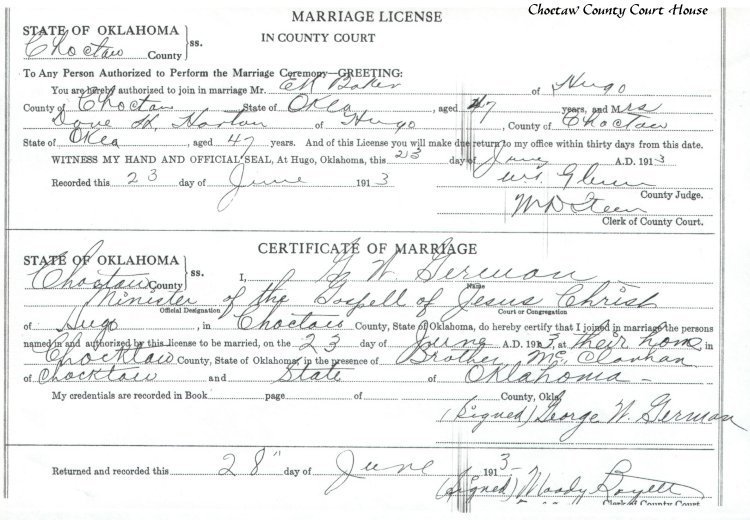 Choctaw County Court House
MARRIAGE LICENSE
STATE OF OKLAHOMA
ss.
IN COUNTY COURT
Choctaw County
To Any Person Authorized to Perform the Marriage Ceremony—GREETING:
You are hereby authorized to join in marriage Mr. EK Baker of Hugo
County of Choctaw State of Okla, aged 47 years, and Mrs
Dove H. Horton of Hugo, County of Choctaw
State of Okla, aged 47 years. And of this License you will make due return to my office within thirty days from this date.
WITNESS MY HAND AND OFFICIAL SEAL, At Hugo, Oklahoma, this 23 day of June A.D. 1913
Recorded this 23 day of June 1913 W.T. Glenn
County Judge.
W D Steen
Clerk of County Court.
STATE OF OKLAHOMA
ss.
CERTIFICATE OF MARRIAGE
Choctaw County I, G W German
Name
Minister of the Gospell of Jesus Christ
Official Designation Court or Congregation
of Hugo, in Choctaw County, State of Oklahoma, do hereby certify that I joined in marriage the persons
named in and authorized by this license to be married, on the 23 day of June A.D. 1913, at their home in
Chocktaw County, State of Oklahoma, in the presence of Brother Mc Clanhan
of Chocktaw and State of Oklahoma -
My credentials are recorded in Book page of County, Okla.
(Signed) George W. German
Returned and recorded this 28" day of June 1913
(Signed) Moody
Clerk of County Court